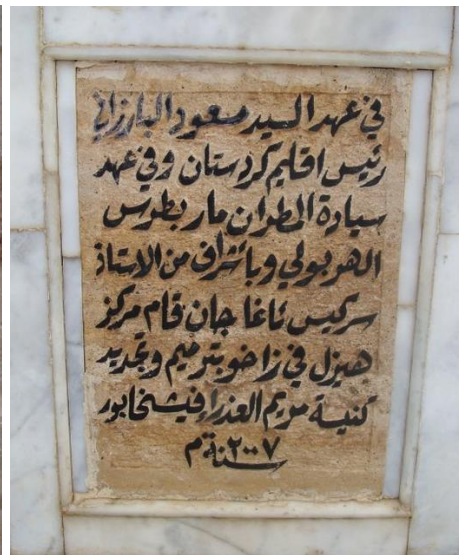 في عهد السيد مسعود البارزاني
رئيس اقليم كردستان وفي عهد
سيادة المطران مار بطرس
الهربولي وباشراف من الاستاذ
سركيس ئاغا جان قام مركز
هيزل في زاخو بترميم وتجديد
كنيسة مريم العذراء فيشخابور
سنة ٢٠٠٧ م